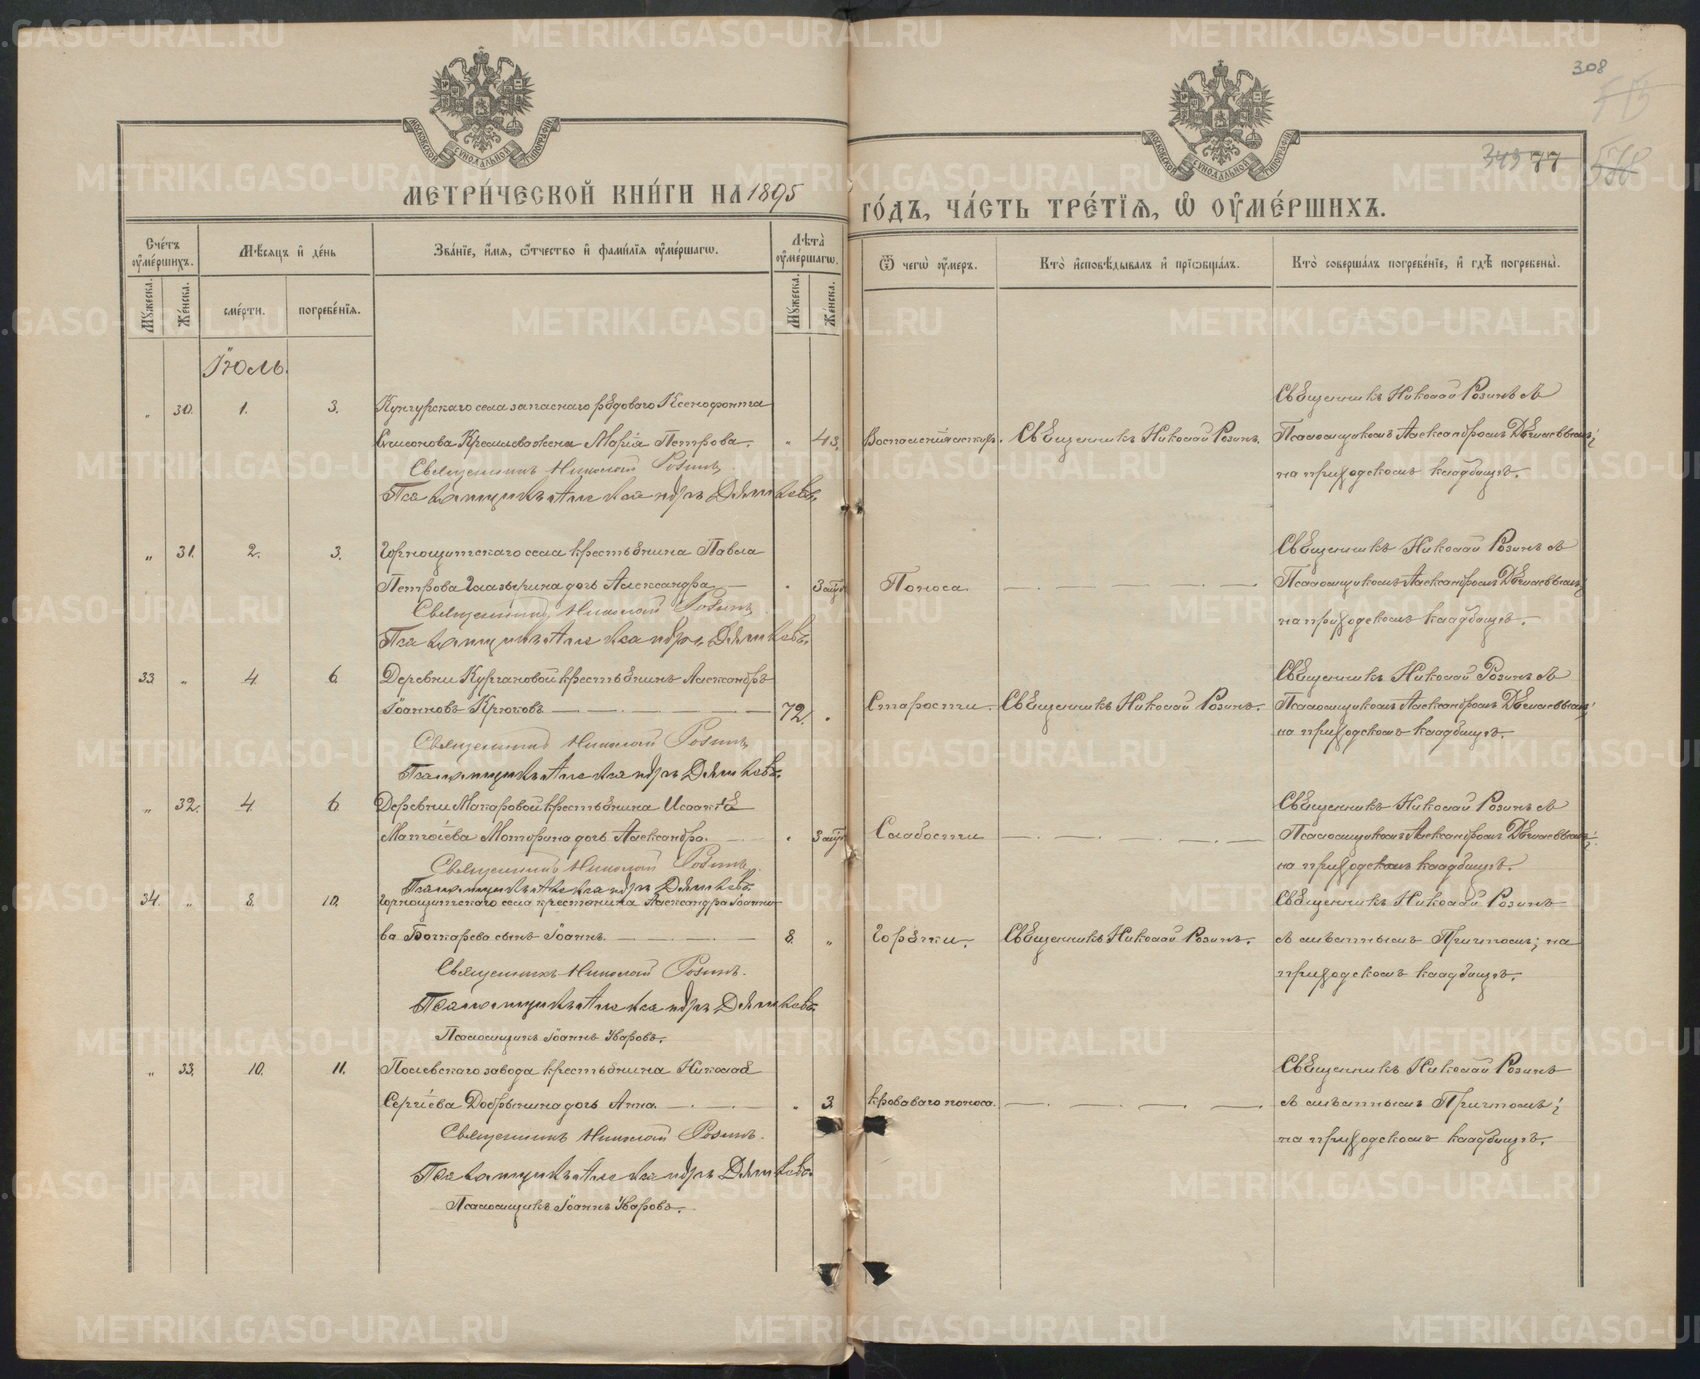 308
515
343 77 578
МОСКОВСКОЙ СѴНОДАЛЬНОЙ ТИПОГРАФІИ
МОСКОВСКОЙ СѴНОДАЛЬНОЙ ТИПОГРАФІИ
МЕТРИ́ЧЕСКОЙ КНИ́ГИ НА 1895
ГО́ДЪ, ЧА́СТЬ ТРЕ́ТІЯ, Ѡ҆ ОУ҆МЕ́РШИХЪ.
Сче́тъ оу҆ме́ршихъ.
Мѣ́сяцъ и҆ де́нь
Зва́ніе, и҆́мя, ѻ҆́тчество и҆ фами́лія оу҆ме́ршагѡ.
Лѣ́та оу҆ме́ршагѡ.
Ѿ чегѡ̀ оу҆́меръ.
Кто̀ и҆сповѣ́дывалъ и҆ прїѡбща́лъ.
Кто̀ соверша́лъ погребе́ніе, и҆ гдѣ̀ погребены̀.
Му́жеска.
Же́нска.
сме́рти.
погребе́нія.
Му́жеска.
Же́нска.
Іюль.
„ 30. 1. 3. Кунгурскаго села запаснаго рядоваго Ксенофонта
Симеонова жена Марія Петрова. „ 43.
Священникъ Николай Розинъ.
Псаломщикъ Александръ Дягилевъ.
Священникъ Николай Розинъ.
Священникъ Николай Розинъ съ
Псаломщикомъ Александромъ Дягилевымъ;
на приходскомъ кладбищѣ.
„ 31. 2. 3. Горнощитскаго села крестьянина Павла
Петрова Глазырина дочь Александра. „ 3
Священникъ Николай Розинъ.
Псаломщикъ Александръ Дягилевъ.
Поноса.
Священникъ Николай Розинъ съ
Псаломщикомъ Александромъ Дягилевымъ;
на приходскомъ кладбищѣ.
33. „ 4. 6. Деревни Кургановой крестьянинъ Александръ
Іоанновъ Крюковъ 72. „
Священникъ Николай Розинъ.
Псаломщикъ Александръ Дягилевъ.
Старости.
Священникъ Николай Розинъ.
Священникъ Николай Розинъ съ
Псаломщикомъ Александромъ Дягилевымъ;
на приходскомъ кладбищѣ.
„ 32. 4. 6. Деревни Макаровой крестьянина
дочь Александра. „ 3
Священникъ Николай Розинъ.
Псаломщикъ Александръ Дягилевъ.
Слабости
Священникъ Николай Розинъ съ
Псаломщикомъ Александромъ Дягилевымъ;
на приходскомъ кладбищѣ.
34. „ 8. 10. Горнощитскаго села крестьянина Александра Іоанно-
ва Бочкарева сынъ Іоаннъ. 8. „
Священникъ Николай Розинъ.
Псаломщикъ Александръ Дягилевъ.
Псаломщикъ Іоаннъ Уваровъ.
Горячки.
Священникъ Николай Розинъ.
Священникъ Николай Розинъ
съ мѣстнымъ Причтомъ; на
приходскомъ кладбищѣ.
„ 33. 10. 11. Полевскаго завода крестьянина Николая
Сергіева Добрынина дочь Анна. „ 3.
Священникъ Николай Розинъ.
Псаломщикъ Александръ Дягилевъ.
Псаломщикъ Іоаннъ Уваровъ.
Кроваваго поноса.
Священникъ Николай Розинъ
съ мѣстнымъ Причтомъ;
на приходскомъ кладбищѣ.
METRIKI.GASO-URAL.RU